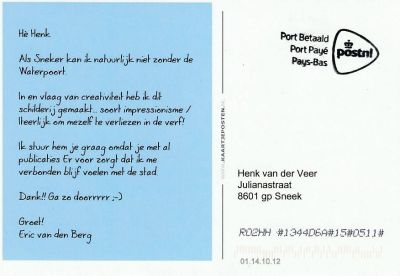 Hè Henk.
Als Sneker kan ik natuurlijk niet zonder de
Waterpoort.
In en vlaag van creativiteit heb ik dit
schilderij gemaakt... soort impressionisme /
lteerlijk om mezelf te verliezen in de verf!
Ik stuur hem je graag omdat je met al
publicaties Er voor zorgt dat ik me
verbonden blijf voelen met de stad.
Dank!! Ga zo doorrrrr ;-)
Groet!
Eric van den Berg
WWW.KAARTJEPOSTEN.NL
Port Betaald
Port Payé
Pays-Bas
postnl
Henk van der Veer
Julianastraat
8601 gp Sneek
RO2HH #1344D6A#15#0511#
01.14.10.12